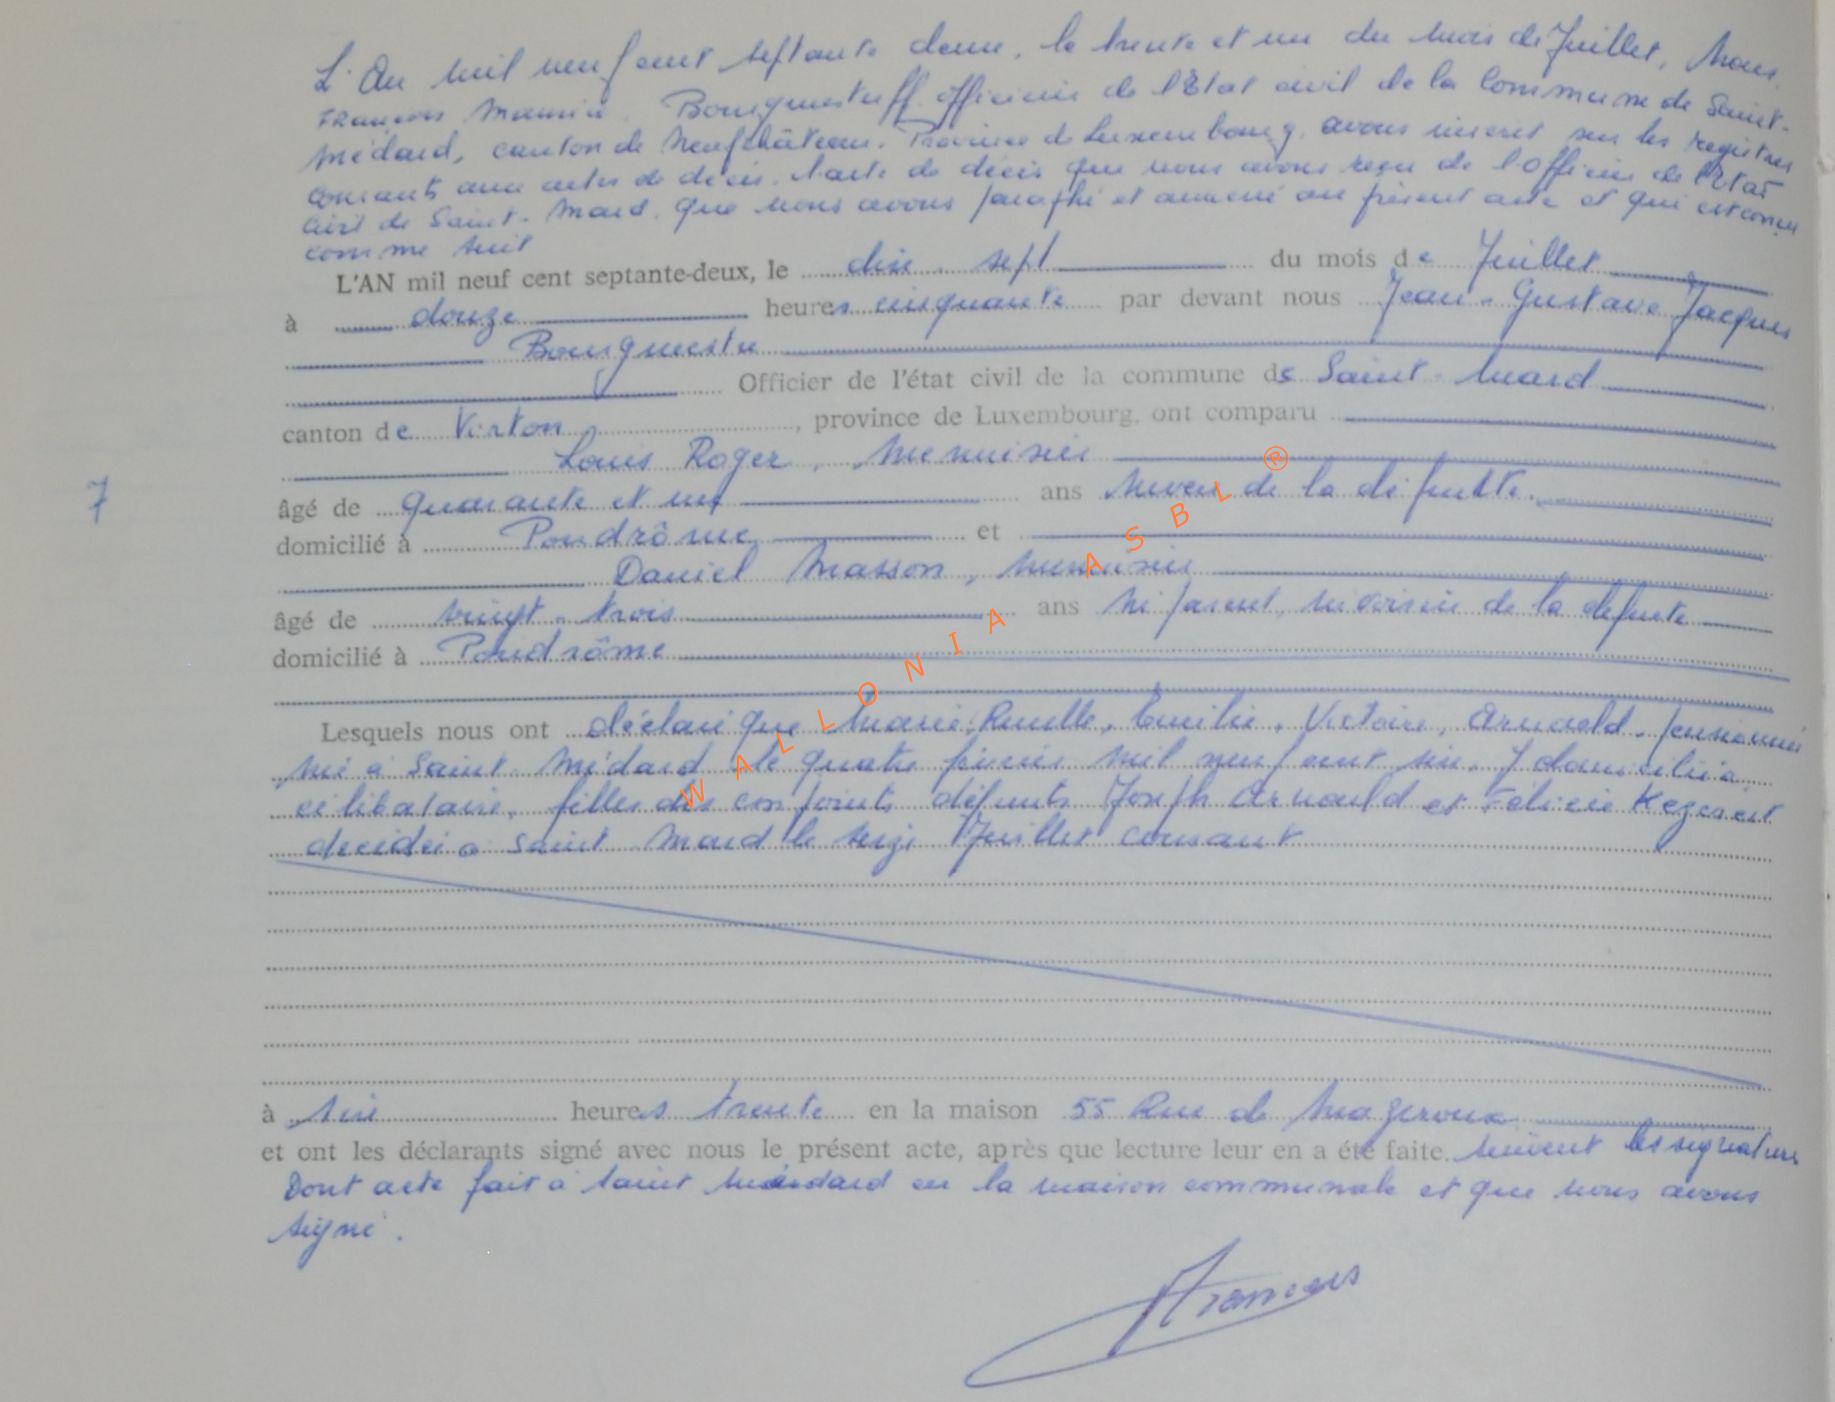 L'An mil neuf cent septante deux, le trente et un du mois de Juillet, Nous,
François Maurice, Bourgmestre, officier de l'Etat civil de la Commune de Saint-
Médard, canton de Neufchâteau, Province de Luxembourg, avons inscrit sur les registres
courants aux actes de décès, l'acte de décès que nous avons reçu de l'officier de l'Etat
civil de Saint-Mard, que nous avons paraphé et annexé au présent acte et qui est conçu
comme suit
L'AN mil neuf cent septante-deux, le dix-sept du mois de Juillet
à douze heures cinquante par devant nous Jean-Gustave Jacques
Bourgmestre
Officier de l'état civil de la commune de Saint-Mard
canton de Virton, province de Luxembourg, ont comparu
Louis Roger, menuisier
7
âgé de quarante et un ans neveu de la défunte
domicilié à Pondrôme et
Daniel Masson, menuisier
âgé de vingt-trois ans ni parent, ni voisin de la défunte
domicilié à Pondrôme
Lesquels nous ont déclaré que Marie, Emilie, Victoire, Arnould, pensionnée
née à Saint-Médard le quatre février mil neuf cent six, y domiciliée
célibataire, filles des conjoints défunts Joseph Arnould et Félicie
décédée à Saint-Mard le seize Juillet courant
à six heures trente en la maison 55 Rue de Mageroux
et ont les déclarants signé avec nous le présent acte, après que lecture leur en a été faite. suivent les signatures
Dont acte fait à Saint Médard en la maison communale et que nous avons
signé.
François
WALLONIA ASBL ®